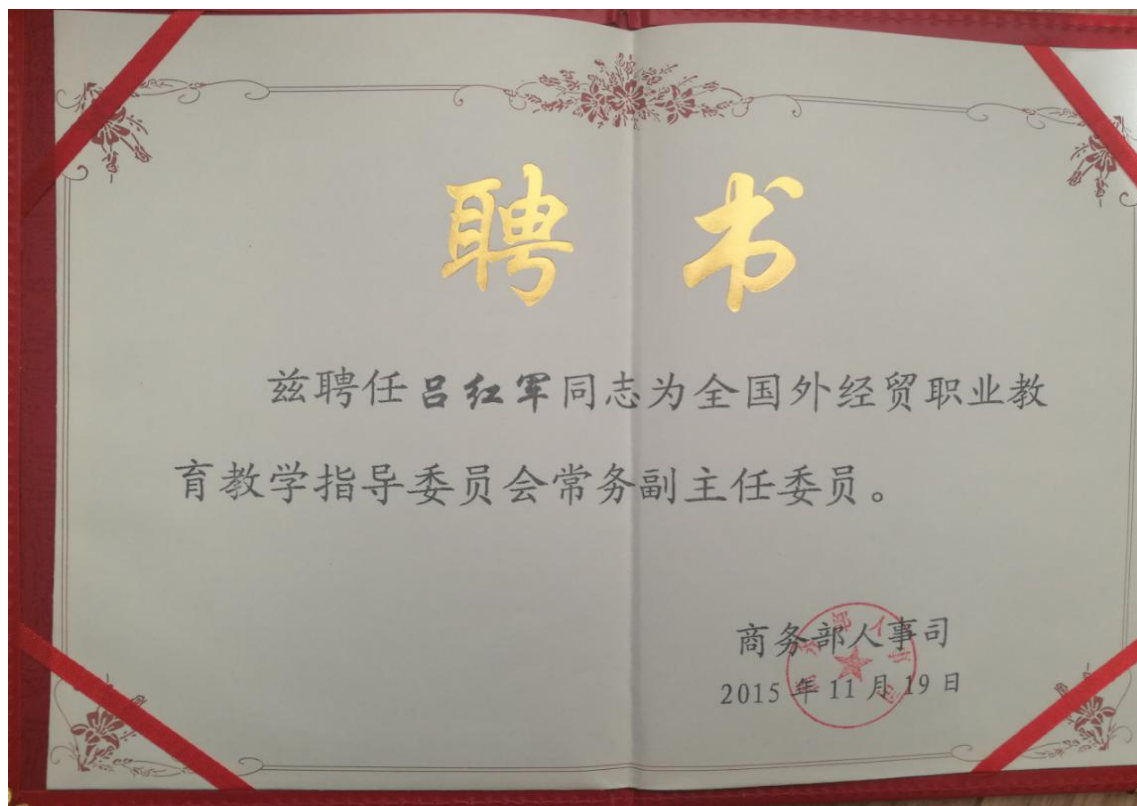 聘 书
兹聘任吕红军同志为全国外经贸职业教
育教学指导委员会常务副主任委员。
商务部人事司
2015年11月19日